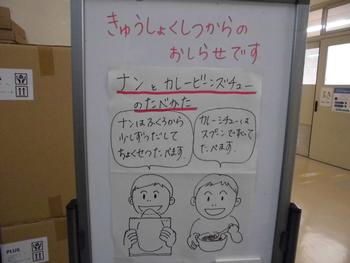 きゅうしょくしつからの
おしらせです
ナンとカレービーンズチュー
のたべかた
ナンはふくろから
少しずつだして
ちょくせつたべます。
カレーシチューは
スプーンですくって
たべます。
PLUS